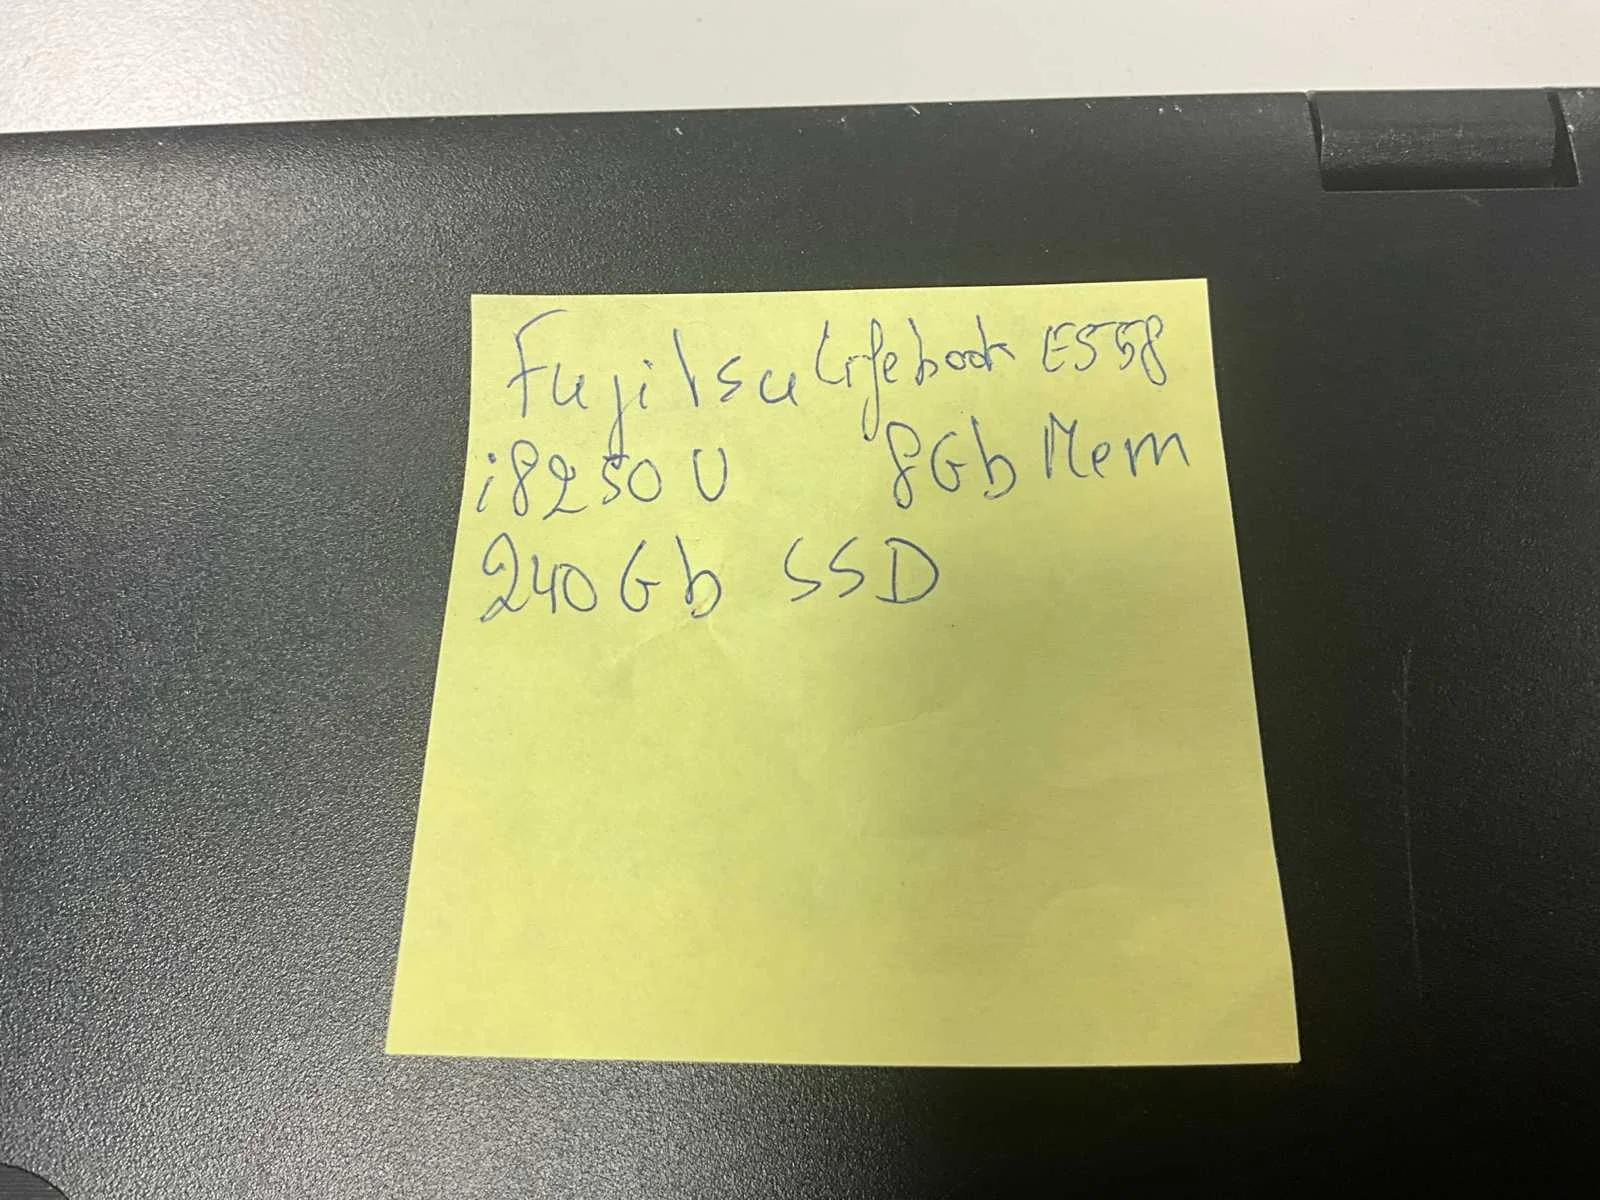 Fujitsu Lifebook E558
i8250U 8Gb Mem
240Gb SSD